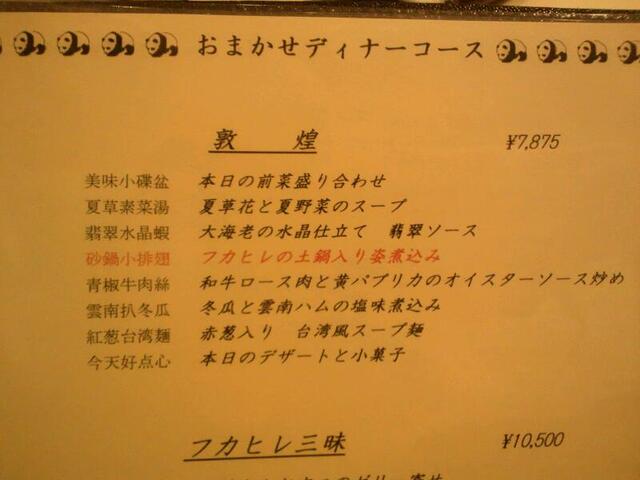 おまかせディナーコース
敦　煌 ¥7,875
美味小碟盆 本日の前菜盛り合わせ
夏草素菜湯 夏草花と夏野菜のスープ
翡翠水晶蝦 大海老の水晶仕立て 翡翠ソース
砂鍋小排翅 フカヒレの土鍋入り姿煮込み
青椒牛肉絲 和牛ロース肉と黄パプリカのオイスターソース炒め
雲南扒冬瓜 冬瓜と雲南ハムの塩味煮込み
紅葱台湾麺 赤葱入り 台湾風スープ麺
今天好点心 本日のデザートと小菓子
フカヒレ三昧 ¥10,500